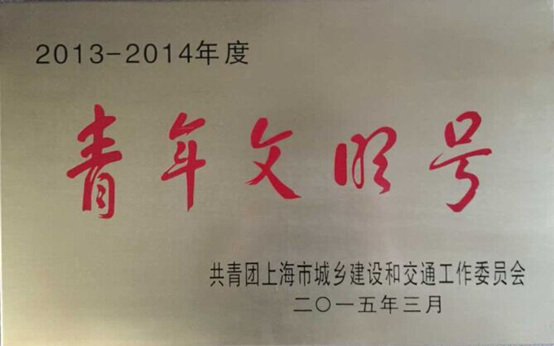 2013-2014年度
青年文明号
共青团上海市城乡建设和交通工作委员会
二〇一五年三月